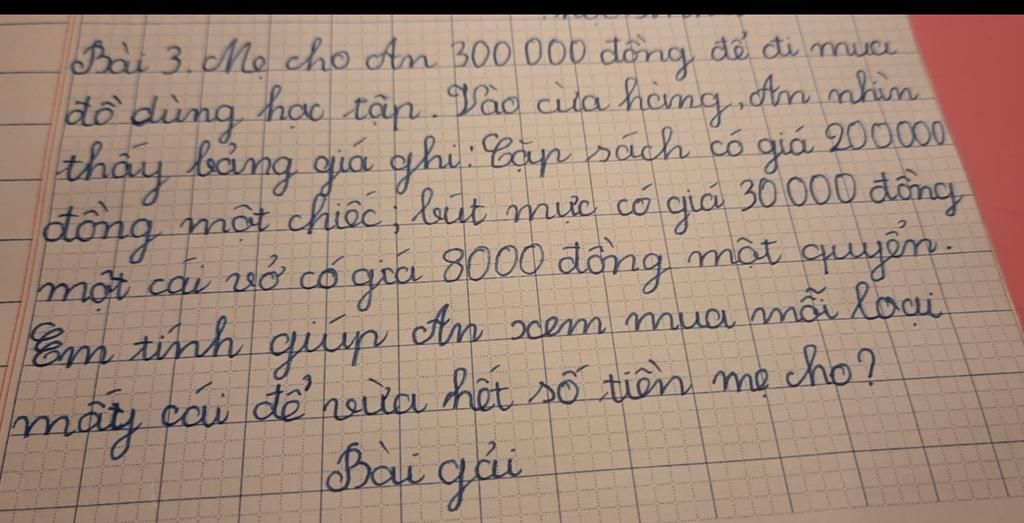 Bài 3. Mẹ cho An 300 000 đồng để đi mua
đồ dùng học tập. Vào cửa hàng, An nhìn
thấy bảng giá ghi: Cặp sách có giá 200000
đồng một chiếc; bút mực có giá 30 000 đồng
một cái vở có giá 8000 đồng một quyển.
Em tính giúp An xem mua mỗi loại
mấy cái để vừa hết số tiền mẹ cho?
Bài gải